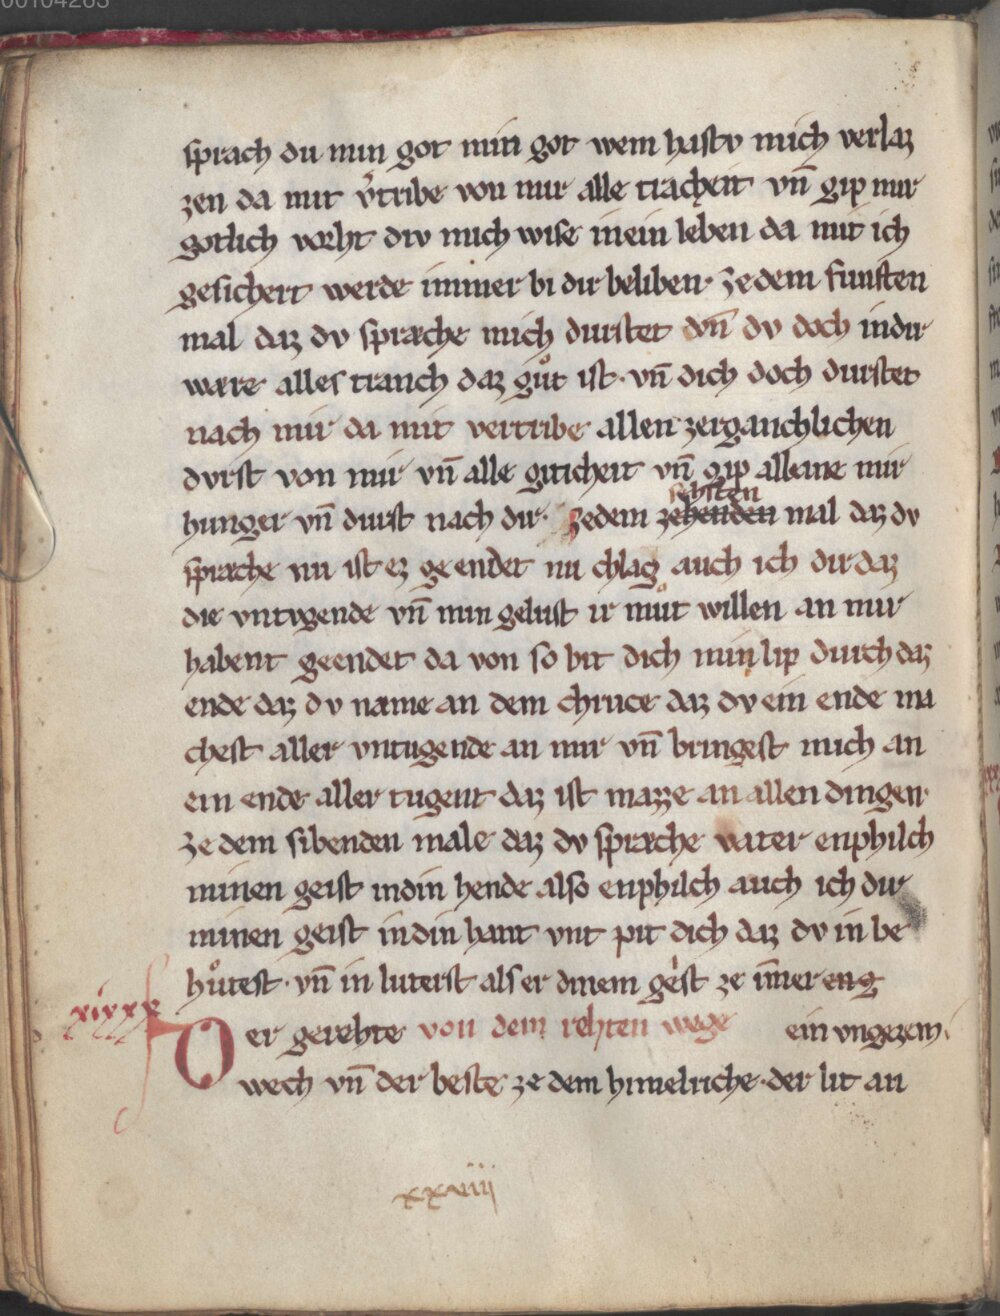 00104263
sprach du min got min got wem hastv mich verlaz
zen da mit v̓tribe von mir alle tracheit vn̄ gip mir
gotlich vorht div mich wise in ein leben da mit ich
gesichert werde immer bi dir beliben· Ze dem funften
mal daz dv spræche mich durstet don̄ dv doch in dir
wære alles tranch daz gůt ist· vn̄ dich doch durstet
nach mir da mit vertribe allen zerganchlichen
dvrst von mir vn̄ alle giticheit vn̄ gip alleine mir
sehsten
hunger vn̄ durst nach dir· Zedem zehenden mal daz dv
spræche nu ist ez geendet nu chlag auch ich dir daz
die vntvgende vn̄ min gelust ir můt willen an mir
habent geendet da von so bit dich min lip durch daz
ende daz dv næme an dem chruce daz dv ein ende ma
chest aller vntugende an mir vn̄ bringest mich an
ein ende aller tugent daz ist mazze an allen dingen·
Ze dem sibenden male daz dv spræche vater enphilch
minen geist in din hende also enphilch auch ich dir
minen geist in din hant vnt pit dich daz dv in be
hůtest· vn̄ in luterst als er dinem geist ze im̄er eng
xixxx
Der gerehte von dem rehten wege ein vngezem
wech vn̄ der beste ze dem himelriche· der lit an
xxviii